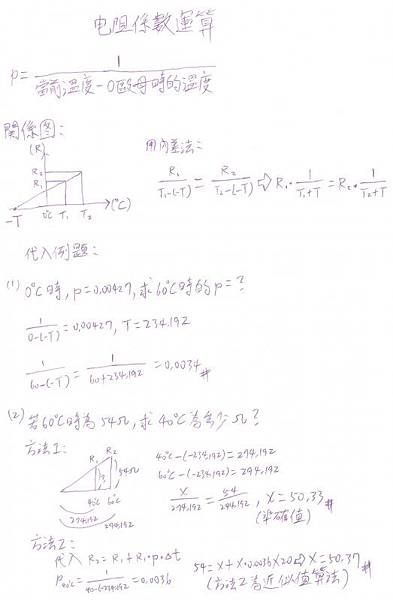 电阻係數運算
p = 1 / 當前溫度-0歐母時的溫度
關係图:
(R)
R₂
R₁
-T 0℃ T₁ T₂ (℃)
用內差法:
R₁ / T₁-(-T) = R₂ / T₂-(-T) ⇨ R₁· 1 / T₁+T = R₂· 1 / T₂+T
代入例題:
(1) 0℃時,p=0.00427,求60℃時的p=?
1 / 0-(-T) = 0.00427, T=234.192
1 / 60-(-T) = 1 / 60+234.192 = 0.0034 #
(2) 若60℃時為54Ω,求40℃為多少Ω?
方法1:
R₁ R₂
54Ω
40℃ 60℃
274.192
294.192
40℃-(-234.192)=274.192
60℃-(-234.192)=294.192
X / 274.192 = 54 / 294.192 , X=50.33 #
(準確值)
方法2:
代入 R₂=R₁+R₁·p·Δt
P40℃= 1 / 40-(-234.192) = 0.0036
54=X+X·0.0036×20 ⇨ X=50.37 #
(方法2為近似值算法)